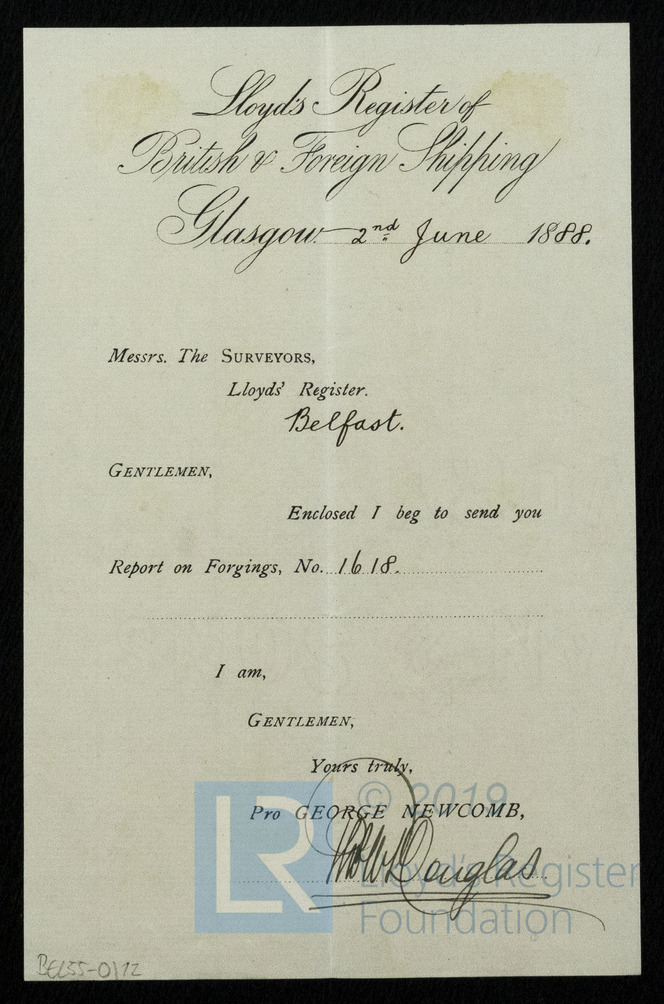 Lloyd's Register of
British & Foreign Shipping
Glasgow 2nd June 1888.
Messrs. The SURVEYORS,
Lloyds' Register.
Belfast.
GENTLEMEN,
Enclosed I beg to send you
Report on Forgings, No. 1618.
I am,
GENTLEMEN,
Yours truly,
Pro GEORGE NEWCOMB,
Douglas
LR
© 2019
Lloyd's Register
Foundation
BEL55-0/12